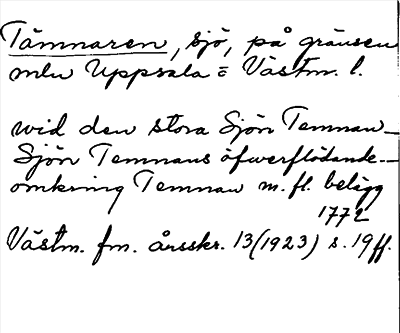 Tämnaren, sjö, på gränsen
mln Uppsala o Västm. l.
wid den stora Sjön Temnan_
Sjön Temnans öfwerflödande_
omkring Temnan m. fl. belägg
1772
Västm. fm. årsskr. 13 (1923) s. 19 ff.